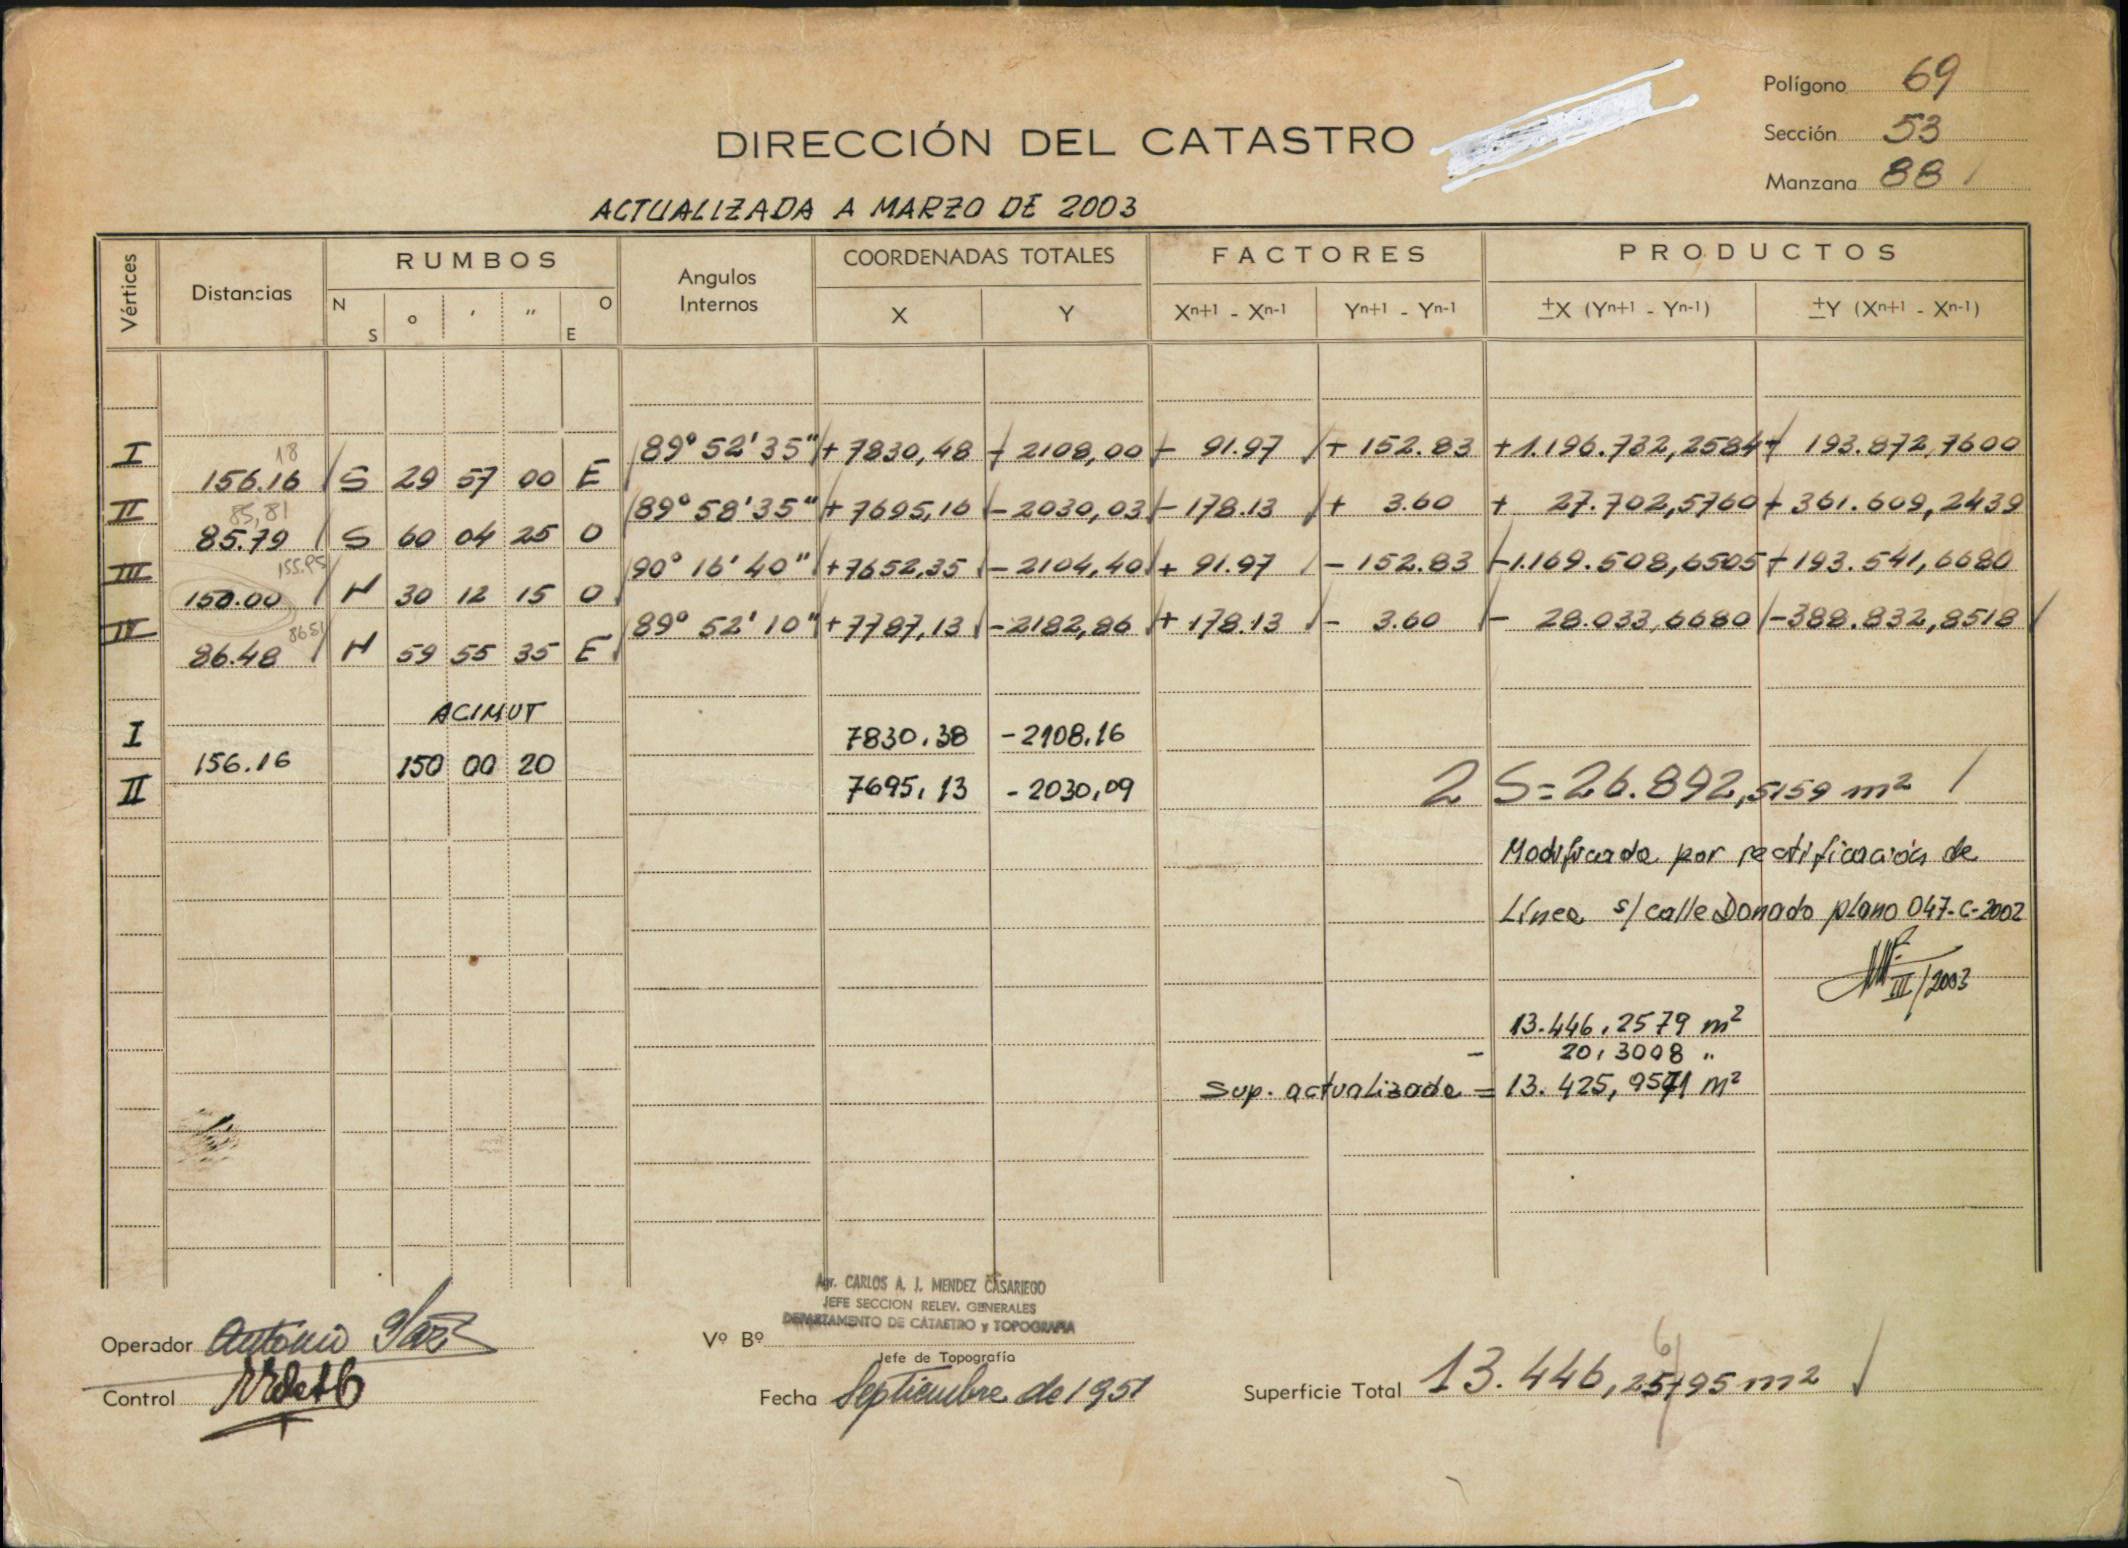 Polígono 69
DIRECCIÓN DEL CATASTRO
Sección 53
Manzana 88 /
ACTUALIZADA A MARZO DE 2003
Vértices Distancias RUMBOS Angulos Internos COORDENADAS TOTALES FACTORES PRODUCTOS
N S ° ' " O E X Y Xn+1 - Xn-1 Yn+1 - Yn-1 ±X (Yn+1 - Yn-1) ±Y (Xn+1 - Xn-1)
I 89° 52' 35" + 7830,48 - 2108,00 - 91.97 + 152.83 + 1.196.732,2584 + 193.872,7600
18
156.16 S 29 57 00 E
II 89° 58' 35" + 7695,16 - 2030,03 - 178.13 + 3.60 + 27.702,5760 + 361.609,2439
85,81
85.79 S 60 04 25 O
III 90° 16' 40" + 7652,35 - 2104,40 + 91.97 - 152.83 - 1.169.508,6505 - 193.541,6680
155.95
150.00 N 30 12 15 O
IV 89° 52' 10" + 7787,13 - 2182,86 + 178.13 - 3.60 - 28.033,6680 - 388.832,8518
8651
86.48 N 59 55 35 E
ACIMUT
I 7830.38 - 2108.16
156.16 150 00 20
II 7695,13 - 2030,09
2 S = 26.892,5159 m² /
Modificada por rectificación de
Línea s/ calle Donado plano 047-C-2002
III/2003
13.446,2579 m²
- 20,3008 "
Sup. actualizada = 13.425,9571 m²
Agr. CARLOS A. J. MENDEZ CASARIEGO
JEFE SECCION RELEV. GENERALES
DEPARTAMENTO DE CATASTRO y TOPOGRAFIA
Operador Antonio
Vº Bº
Jefe de Topografía
Control
Fecha Septiembre de 1951
Superficie Total 13.446,25795 m² /
6